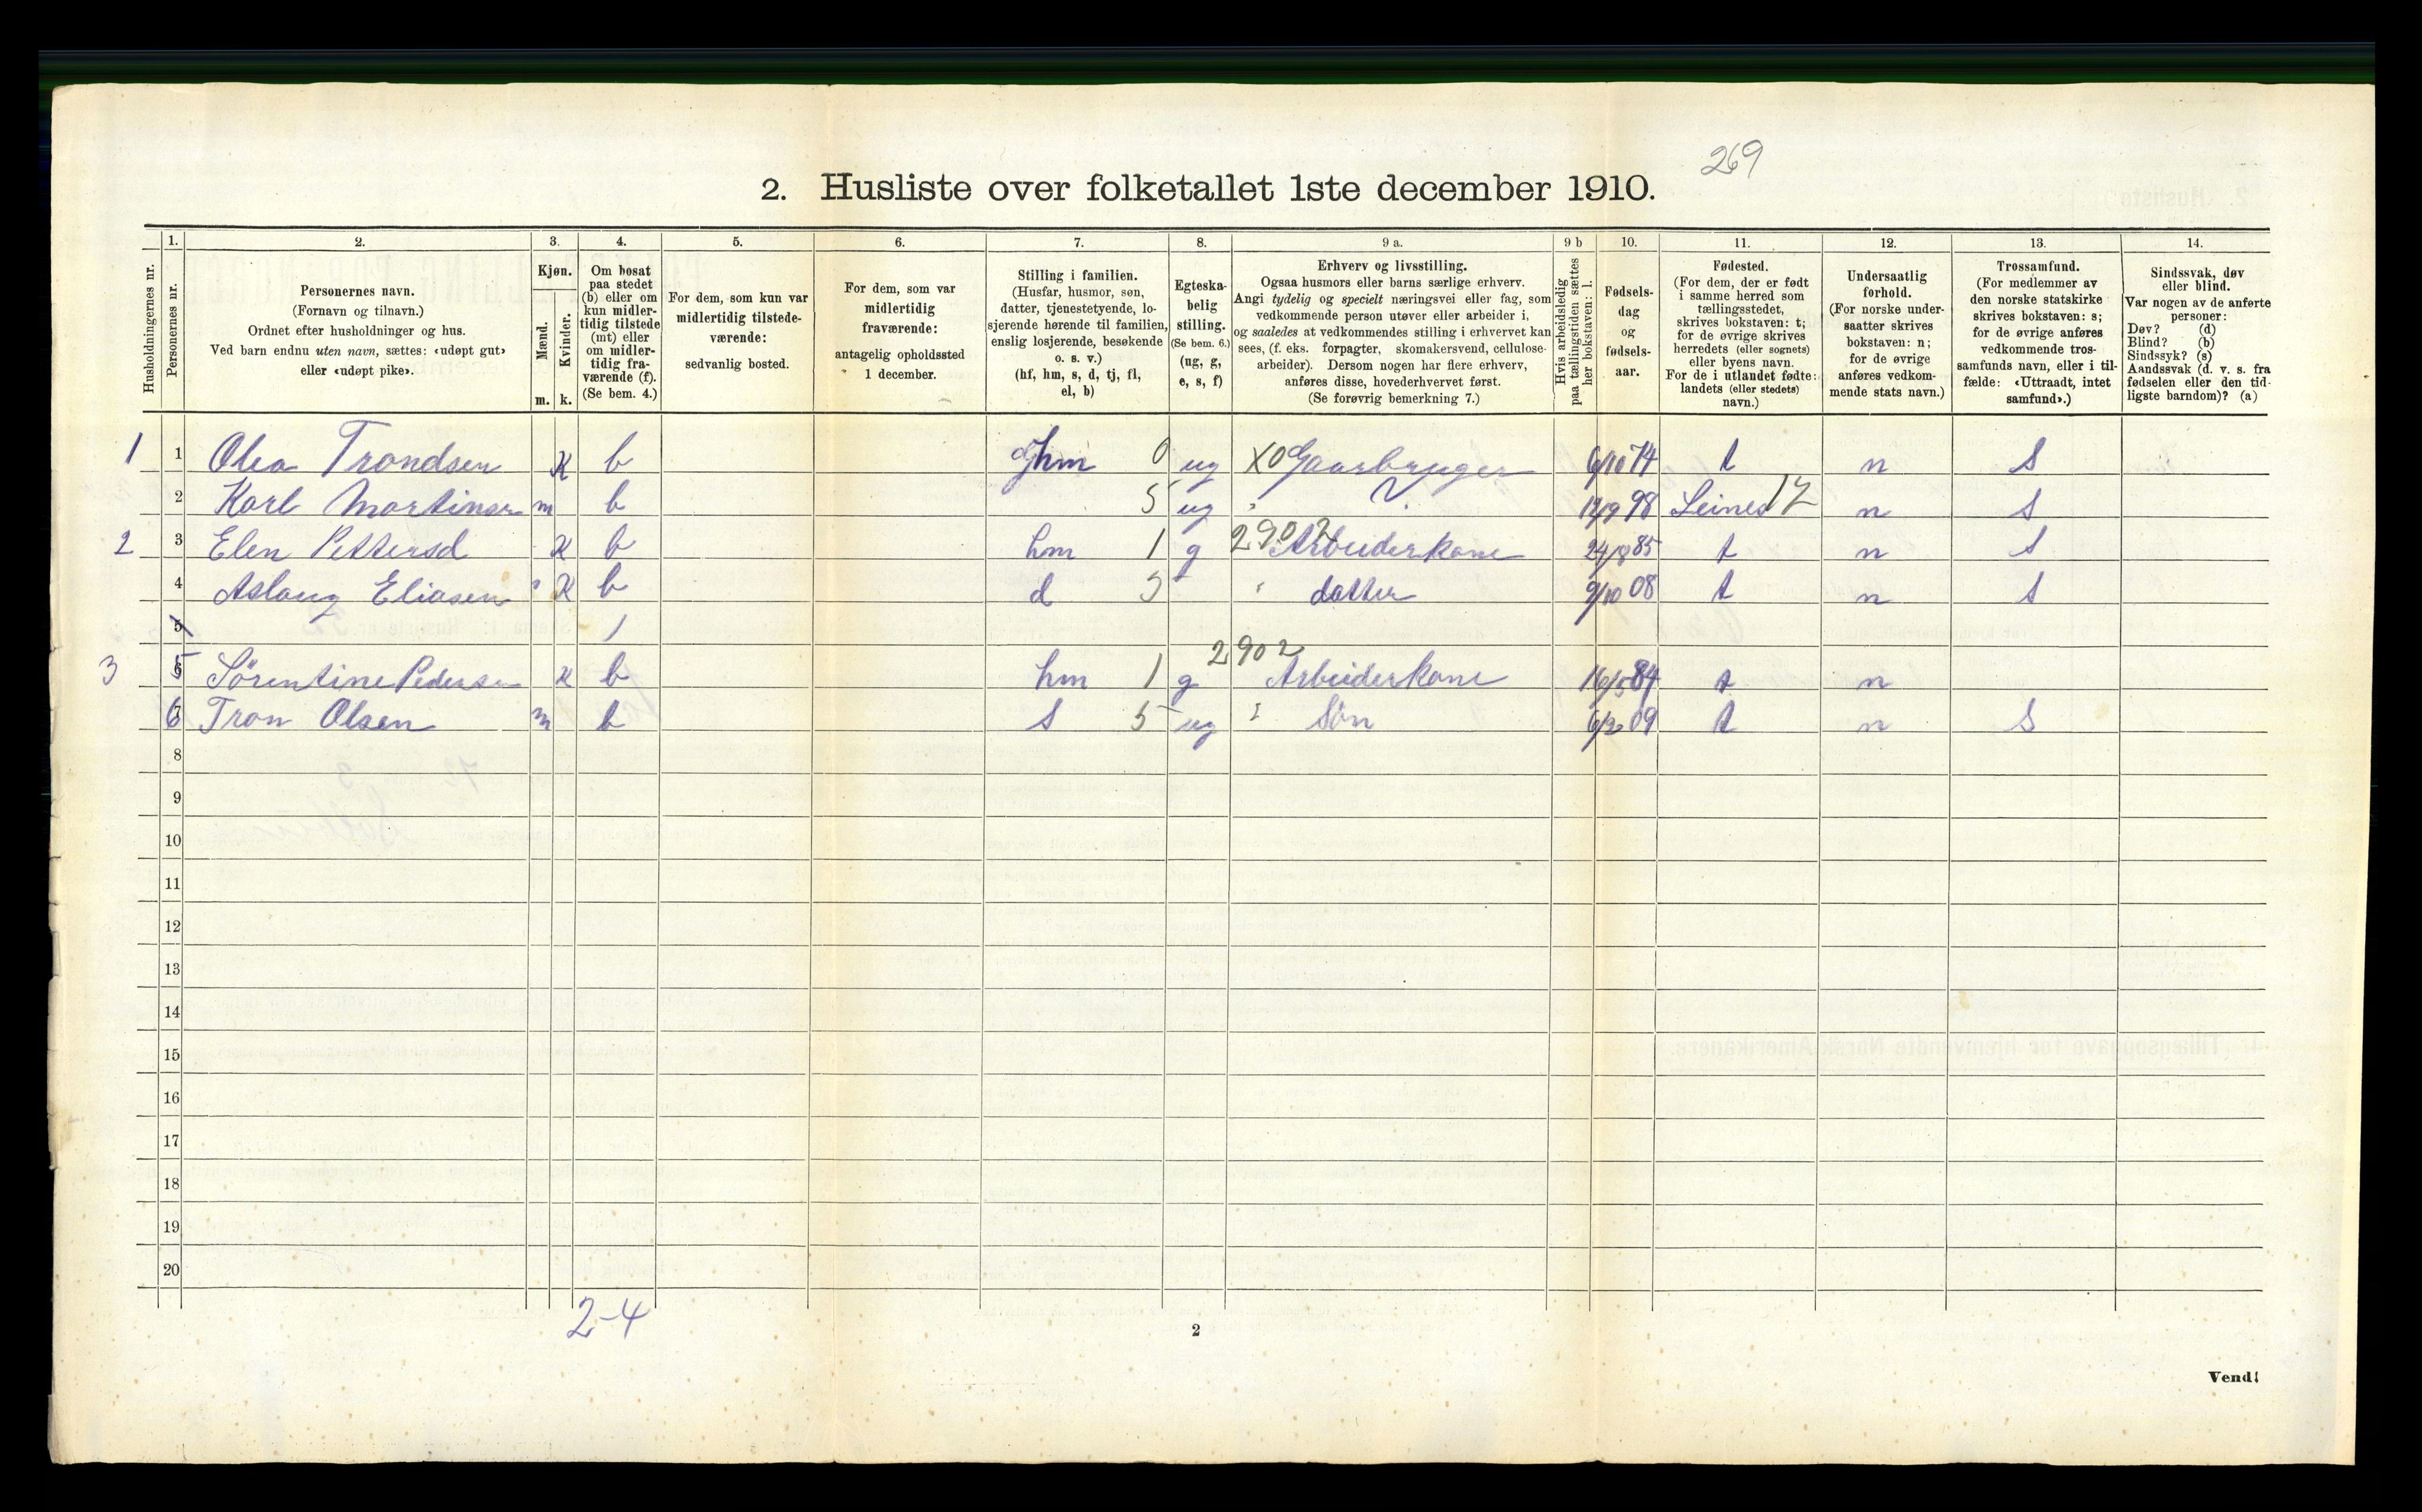 269
2. Husliste over folketallet 1ste december 1910.
Husholdningernes nr.
1. Personernes nr.
2. Personernes navn.
(Fornavn og tilnavn.)
Ordnet efter husholdninger og hus.
Ved barn endnu uten navn, sættes: «udøpt gut»
eller «udøpt pike».
3. Kjøn.
Mænd. Kvinder.
m. k.
4. Om bosat
paa stedet
(b) eller om
kun midler-
tidig tilstede
(mt) eller
om midler-
tidig fra-
værende (f).
(Se bem. 4.)
5. For dem, som kun var
midlertidig tilstede-
værende:
sedvanlig bosted.
6. For dem, som var
midlertidig
fraværende:
antagelig opholdssted
1 december.
7. Stilling i familien.
(Husfar, husmor, søn,
datter, tjenestetyende, lo-
sjerende hørende til familien,
enslig losjerende, besøkende
o. s. v.)
(hf, hm, s, d, tj, fl,
el, b)
8. Egteska-
belig
stilling.
(Se bem. 6.)
(ug, g,
e, s, f)
9 a. Erhverv og livsstilling.
Ogsaa husmors eller barns særlige erhverv.
Angi tydelig og specielt næringsvei eller fag, som
vedkommende person utøver eller arbeider i,
og saaledes at vedkommendes stilling i erhvervet kan
sees, (f. eks. forpagter, skomakersvend, cellulose-
arbeider). Dersom nogen har flere erhverv,
anføres disse, hovederhvervet først.
(Se forøvrig bemerkning 7.)
9 b Hvis arbeidsledig
paa tællingstiden sættes
her bokstaven: l.
10. Fødsels-
dag
og
fødsels-
aar.
11. Fødested.
(For dem, der er født
i samme herred som
tællingsstedet,
skrives bokstaven: t;
for de øvrige skrives
herredets (eller sognets)
eller byens navn.
For de i utlandet fødte:
landets (eller stedets)
navn.)
12. Undersaatlig
forhold.
(For norske under-
saatter skrives
bokstaven: n;
for de øvrige
anføres vedkom-
mende stats navn.)
13. Trossamfund.
(For medlemmer av
den norske statskirke
skrives bokstaven: s;
for de øvrige anføres
vedkommende tros-
samfunds navn, eller i til-
fælde: «Uttraadt, intet
samfund».)
14. Sindssvak, døv
eller blind.
Var nogen av de anførte
personer:
Døv? (d)
Blind? (b)
Sindssyk? (s)
Aandssvak (d. v. s. fra
fødselen eller den tid-
ligste barndom)? (a)
1 1 Olea Trondsen K b hm 0 ug X0 Gaarbruger 6/10 74 t n s
2 Karl Martinsen m b 5 ug 98 Leines 17 n s
2 3 Elen Pettersd K b hm 1 g 2902 Arbeiderkone 85 t n s
4 Aslaug Eliasen K b d 5 " datter 9/10 08 t n s
5
3 5 Sörentine Pedersen K b hm 1 g 2902 Arbeiderkone 16/5 84 t n
6 Tron Olsen m b s 5 ug " Sön 6/2 09 t n s
8
9
10
11
12
13
14
15
16
17
18
19
20
2-4
2
Vend!